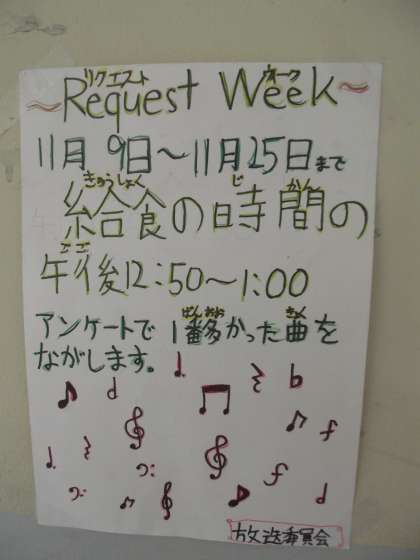 リクエスト ウィーク
~Request Week~
11月 9日~11月25日まで
きゅうしょく じ かん
給食の時間の
ごご
午後12:50~1:00
ばんおお きょく
アンケートで1番多かった曲を
ながします。
放送委員会